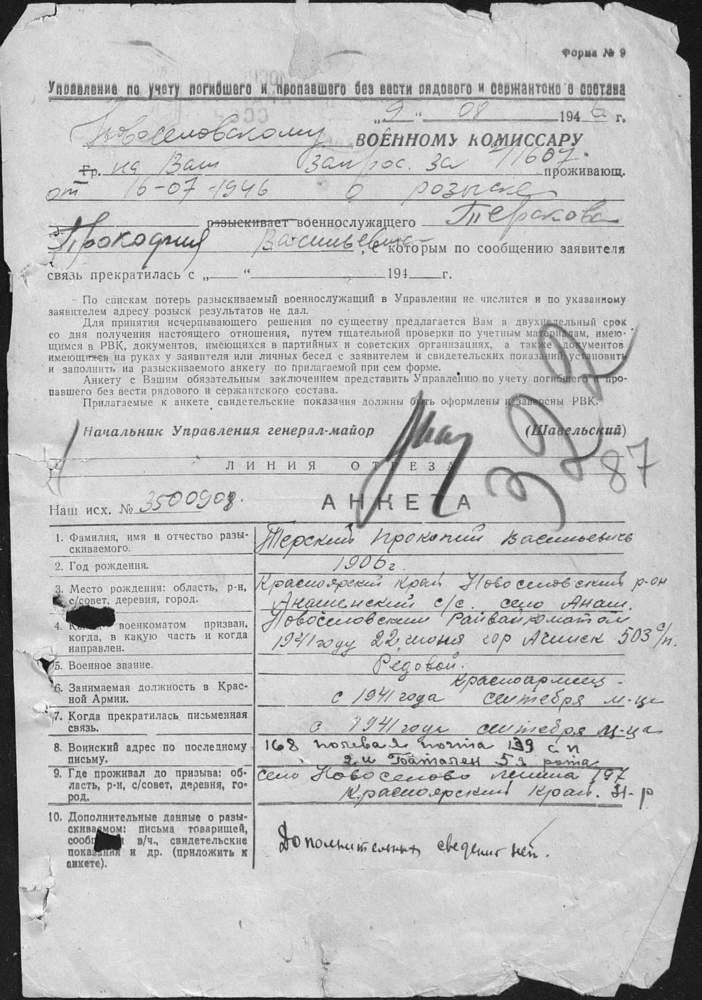 Форма № 9
Управление по учету погибшего и пропавшего без вести рядового и сержантского состава
„9“ 08 1946 г.
Новоселовскому ВОЕННОМУ КОМИССАРУ
Гр. на Ваш запрос за 41607 проживающ.
от 16-07-1946 о розыске
разыскивает военнослужащего Терскова
Прокофия Васильевича, с которым по сообщению заявителя
связь прекратилась с „ “ 194 г.
По спискам потерь разыскиваемый военнослужащий в Управлении не числится и по указанному
заявителем адресу розыск результатов не дал.
Для принятия исчерпывающего решения по существу предлагается Вам в двухнедельный срок
со дня получения настоящего отношения, путем тщательной проверки по учетным материалам, имею-
щимся в РВК, документов, имеющихся в партийных и советских организациях, а также документов
имеющихся на руках у заявителя или личных бесед с заявителем и свидетельских показаний, установить
и заполнить на разыскиваемого анкету по прилагаемой при сем форме.
Анкету с Вашим обязательным заключением представить Управлению по учету погибшего и про-
павшего без вести рядового и сержантского состава.
Прилагаемые к анкете свидетельские показания должны быть оформлены и заверены РВК.
Начальник Управления генерал-майор (Шавельский)
392
87
ЛИНИЯ ОТРЕЗА
Наш исх. № 3500908. АНКЕТА
1. Фамилия, имя и отчество разы-
скиваемого.
Терский Прокопий Васильевич
2. Год рождения.
1906 г.
3. Место рождения: область, р-н,
с/совет, деревня, город.
Красноярский край Новоселовский р-он
Анашенский с/с. село Анаш.
4. военкоматом призван,
когда, в какую часть и когда
направлен.
Новоселовским Райвоенкоматом
1941 году 22 июня гор Ачинск 503 с/п.
5. Военное звание.
Редовой.
6. Занимаемая должность в Крас-
ной Армии.
Красноармеец -
с 1941 года сентября м-ца
7. Когда прекратилась письменная
связь.
с 1941 года сентября м-ца
8. Воинский адрес по последнему
письму.
168 полевая почта 199 с п
2й Батален 5я рота
9. Где проживал до призыва: об-
ласть, р-н, с/совет, деревня, го-
род.
село Новоселово ленина 197
Красноярский Край. Н-р
10. Дополнительные данные о разы-
скиваемом: письма товарищей,
в/ч., свидетельские
показания и др. (приложить к
анкете).
Дополнительных сведений нет.